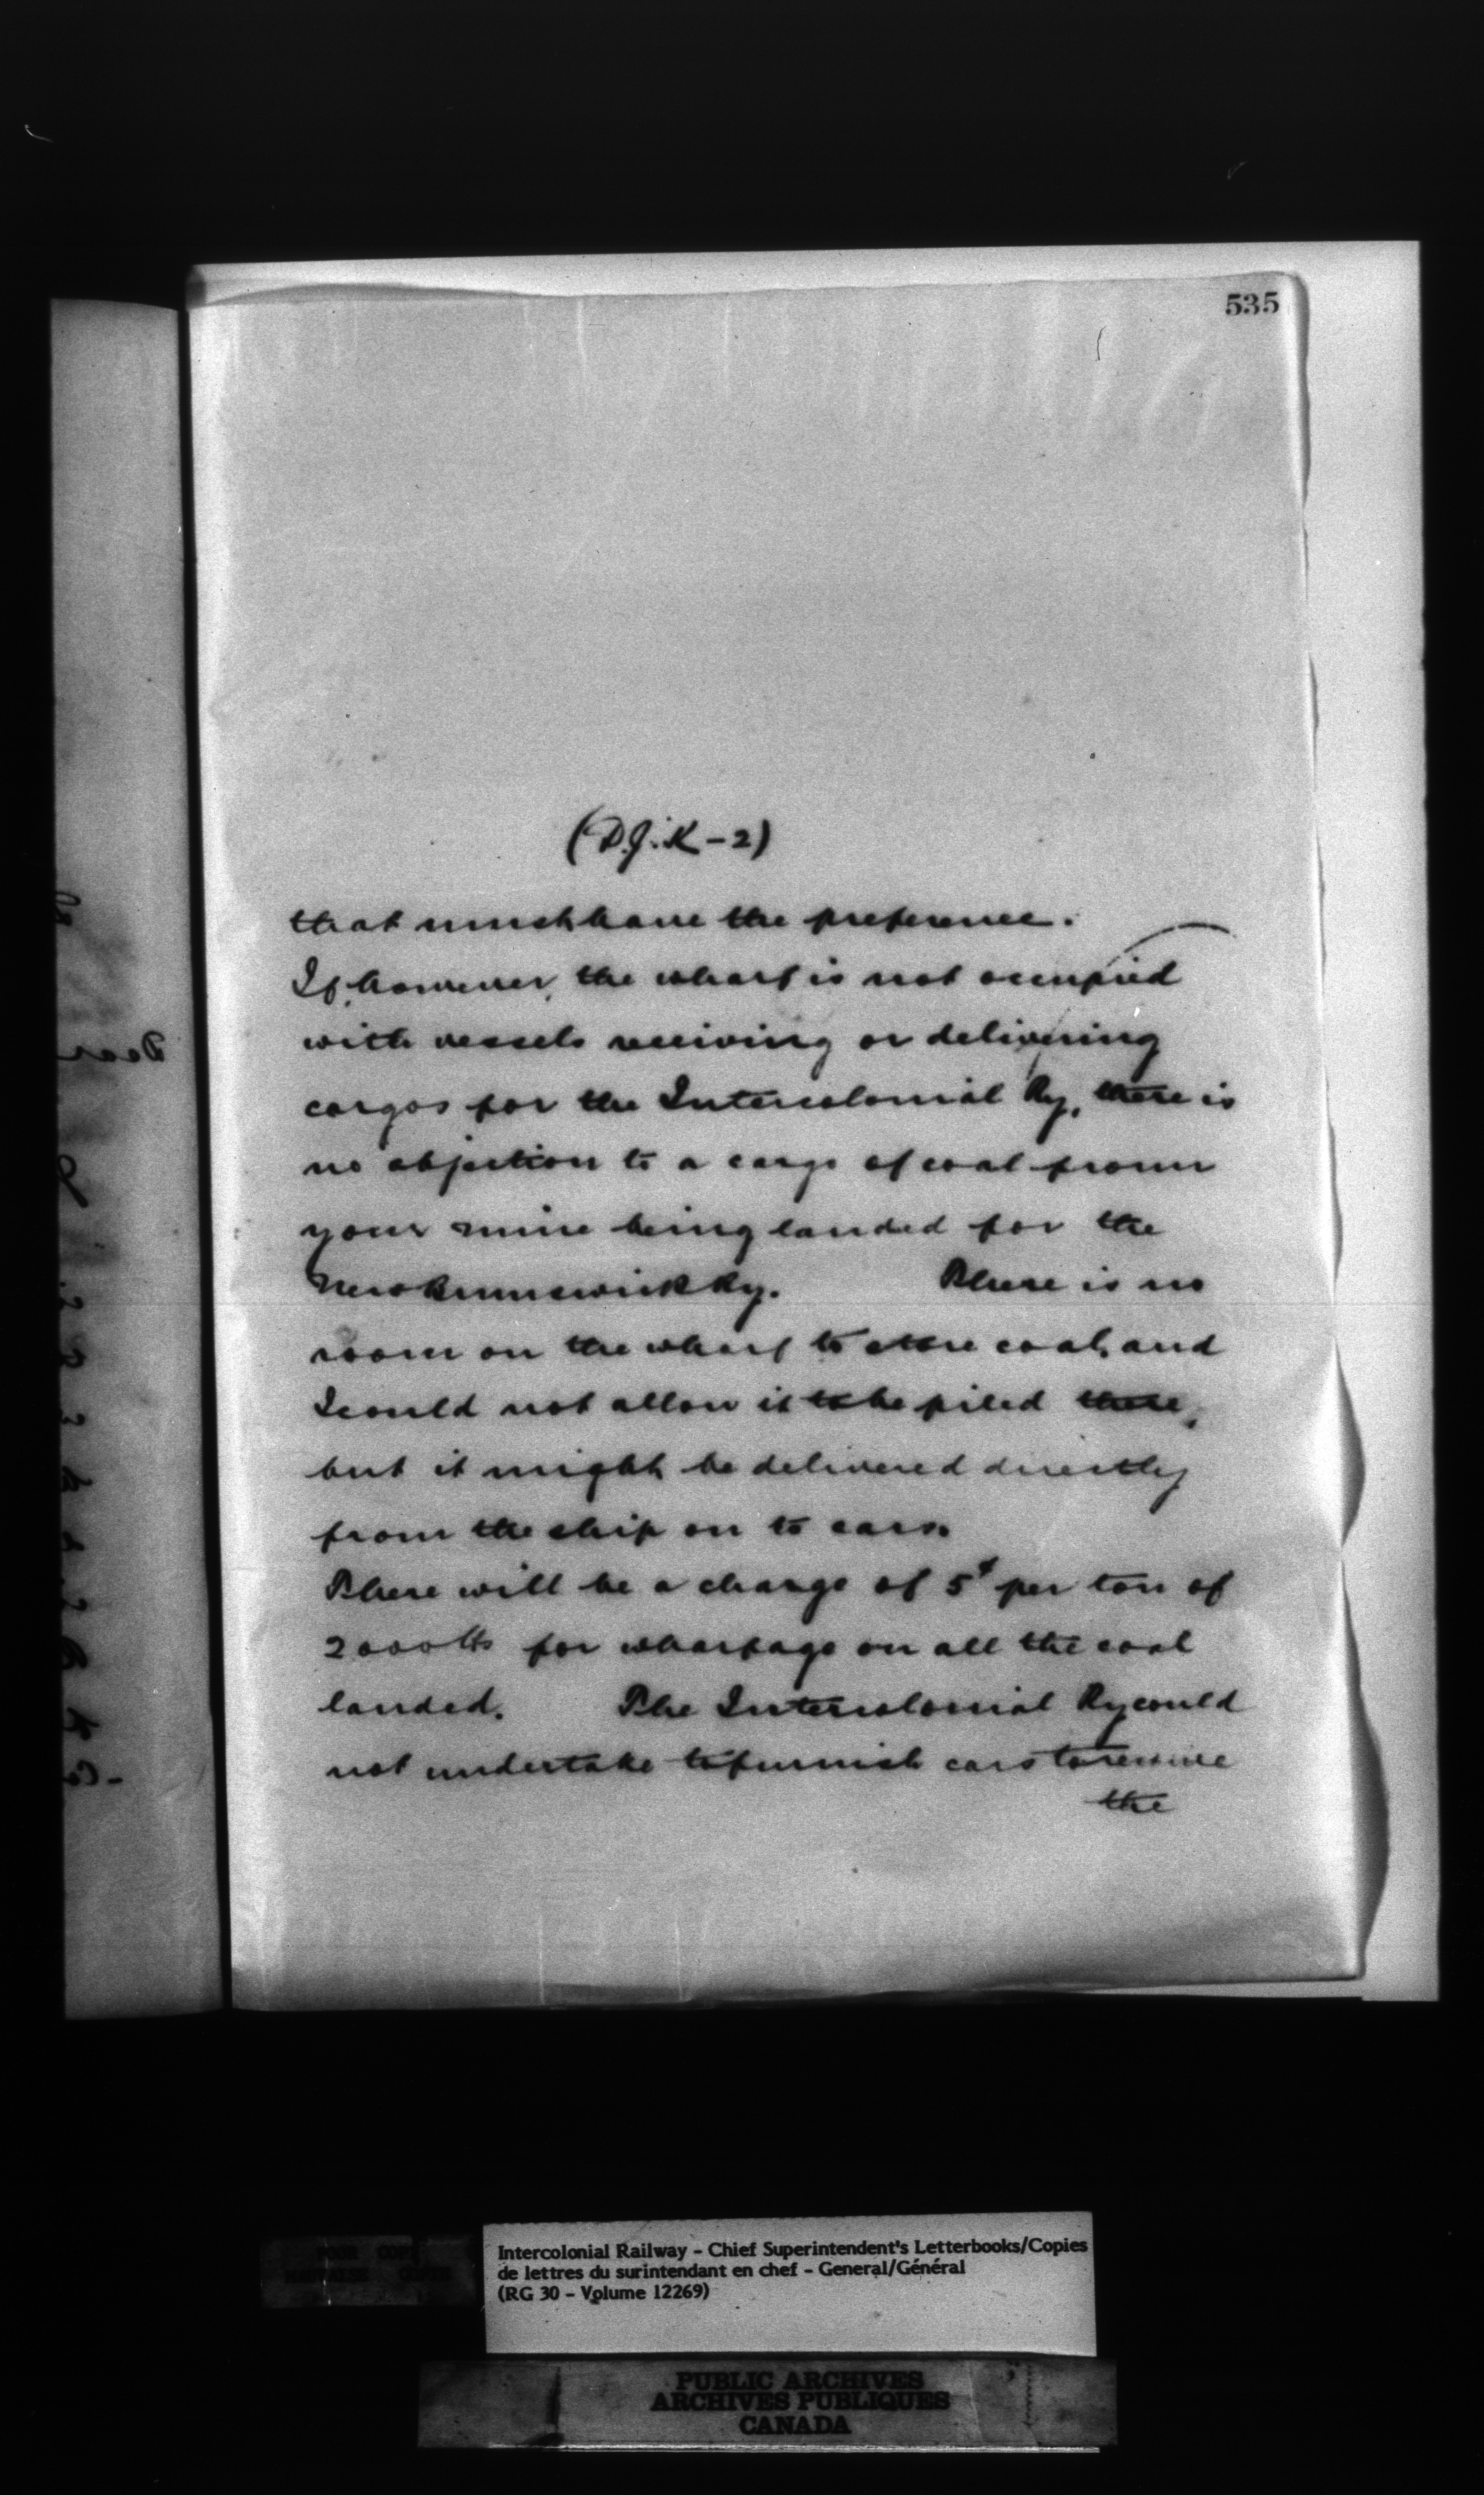 535
(D.J.K-2)
that must have the preference.
If, however, the wharf is not occupied
with vessels receiving or delivering
cargos for the Intercolonial Ry, there is
no objection to a cargo of coal from
your mine being landed for the
New Brunswick Ry. There is no
room on the wharf to store coal, and
I could not allow it to be piled there,
but it might be delivered directly
from the ship on to cars.
There will be a charge of 5¢ per ton of
2000 lbs for wharfage on all the coal
landed. The Intercolonial Ry could
not undertake to furnish cars to receive
the
Intercolonial Railway - Chief Superintendent's Letterbooks/Copies
de lettres du surintendant en chef - General/Général
(RG 30 - Volume 12269)
PUBLIC ARCHIVES
ARCHIVES PUBLIQUES
CANADA